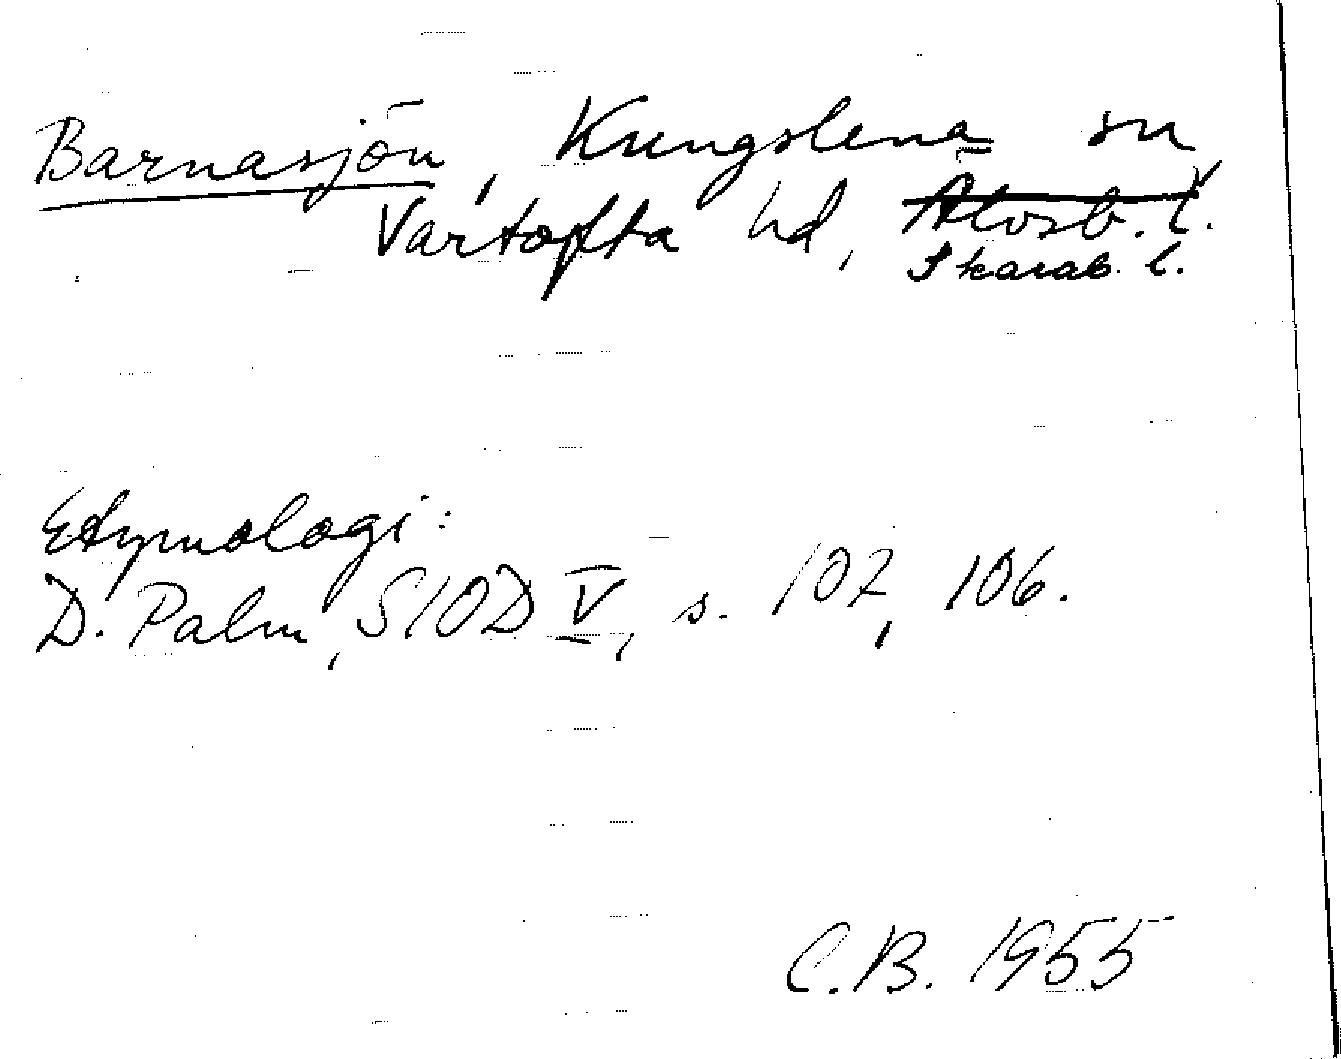 Barnasjön, Kungslena sn,
Vartofta hd, Älvsb. l.
Skarab. l.
Etymologi:
D. Palm, SIOD V, s. 107, 106.
C.B. 1955